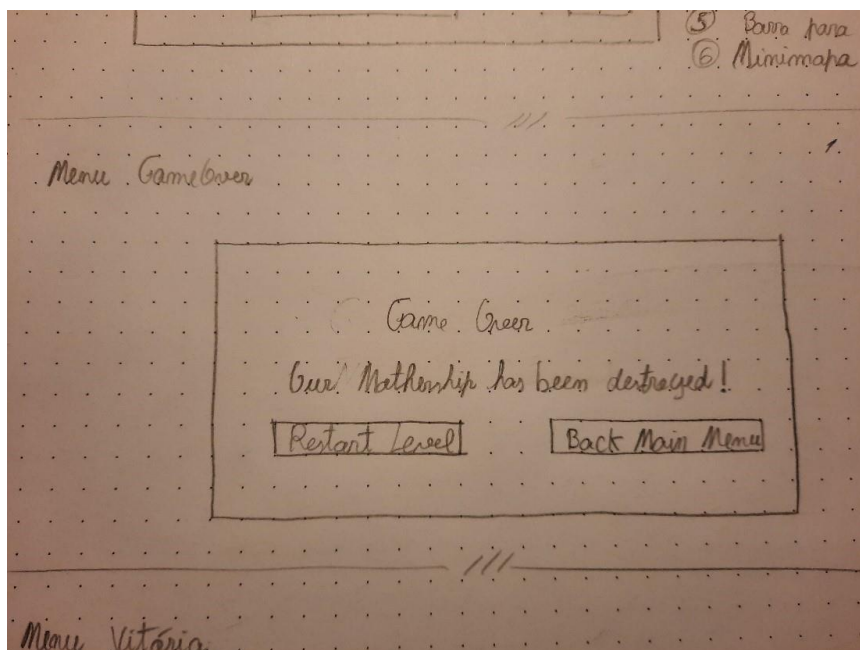 ⑤ Barra para
⑥ Minimapa
Menu GameOver
Game Over
Our Mothership has been destroyed!
Restart Level
Back Main Menu
Menu Vitória